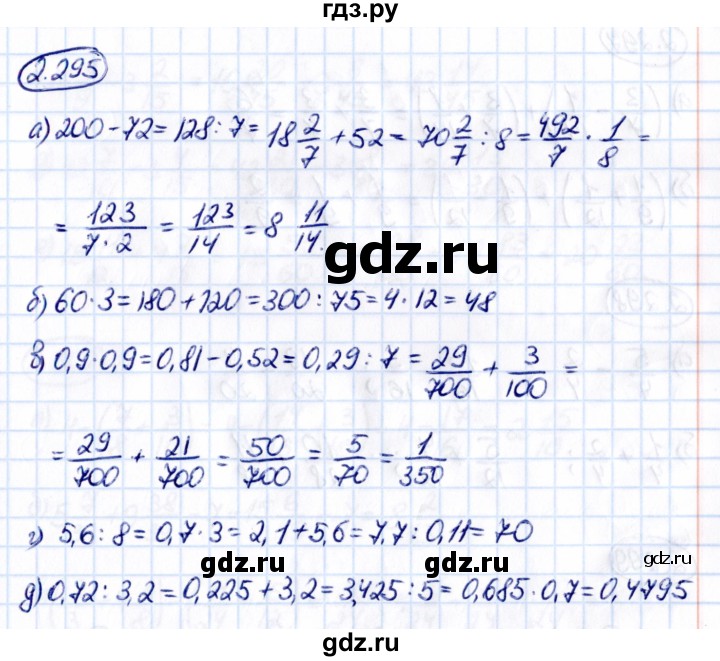 гдз.ру
2.295
а) 200 - 72 = 128 : 7 = 18 2/7 + 52 = 70 2/7 : 8 = 492/7 · 1/8 =
= 123/(7·2) = 123/14 = 8 11/14.
gdz.ru
б) 60·3 = 180 + 120 = 300 : 75 = 4·12 = 48
в) 0,9·0,9 = 0,81 - 0,52 = 0,29 : 7 = 29/700 + 3/100 =
= 29/700 + 21/700 = 50/700 = 5/70 = 1/350
г) 5,6 : 8 = 0,7·3 = 2,1 + 5,6 = 7,7 : 0,11 = 70
gdz.ru
gdz.ru
д) 0,72 : 3,2 = 0,225 + 3,2 = 3,425 : 5 = 0,685·0,7 = 0,4795
gdz.ru